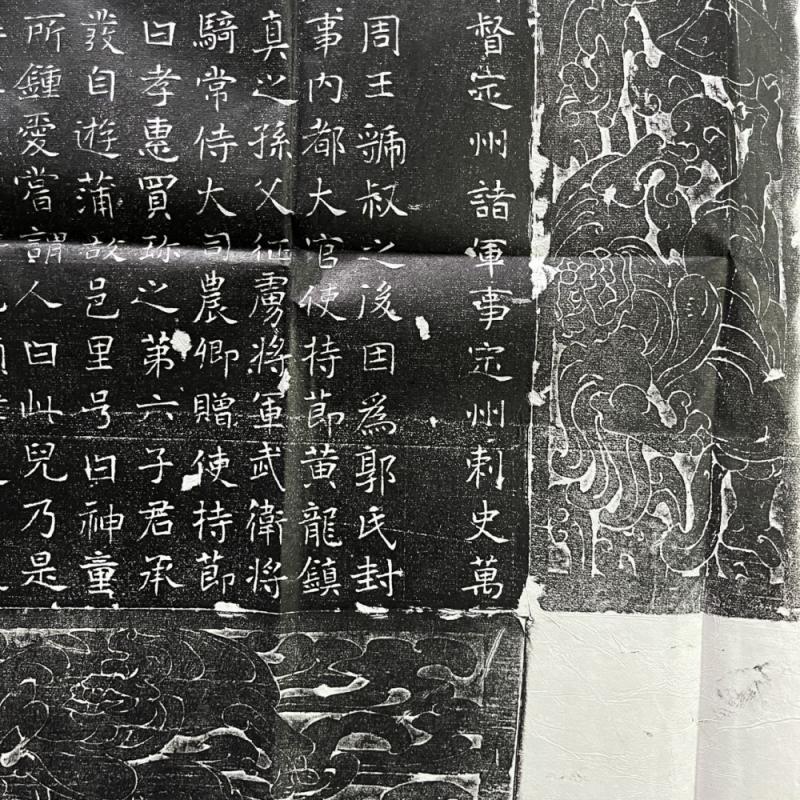 督定州諸軍事定州刺史萬
周王虢叔之後因為郭氏封
事內都大官使持節黃龍鎮
真之孫父征虜將軍武衛將
騎常侍大司農卿贈使持節
曰孝惠買珎之第六子君承
發自遊蒲故邑里号曰神童
所鍾愛嘗謂人曰此兒乃是